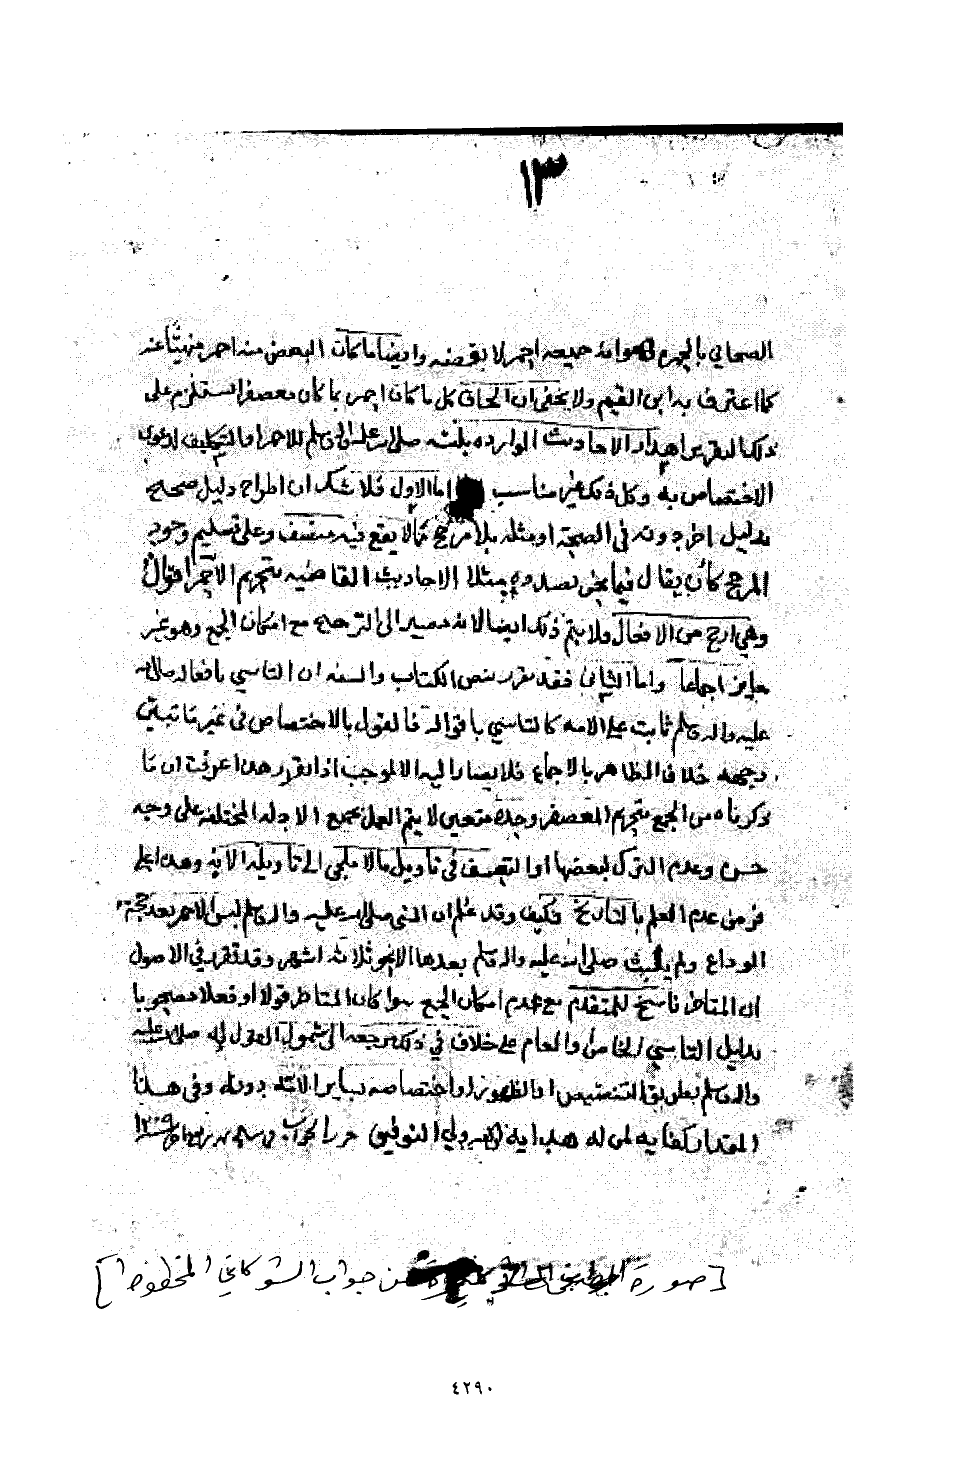 ١٣
الصحابي بالجزم بأنه جميعه احمر لا بعضه وايضا ما كان البعض منه احمر منهيا عنه
كما اعترف به ابن القيم ولا يخفى ان الحاق كل ما كان احمر بما كان معصفرا يستلزم على
ذلك التقرير اهدار الاحاديث الوارده بلبسه صلى الله عليه واله وسلم للاحمر او التكليف لدعوى
الاختصاص به وكل ذلك غير مناسب اما الاول فلا شك ان اطراح دليل صحيح
بدليل اخر دونه في الصحة او مثله بلا مرجح مما لا يقع فيه منصف وعلى تسليم وجود
المرجح كأن يقال فيما نحن بصدده مثلا الاحاديث القاضيه بتحريم الاحمر اقوال
وهي ارجح من الافعال ولا يتم ذلك ايضا لانه مصير الى الترجيح مع امكان الجمع وهو غير
جايز اجماعا واما الثاني فقد تقرر بنص الكتاب والسنه ان التاسي بافعاله صلى الله
عليه واله وسلم ثابت على الامه كالتاسي باقواله فالقول بالاختصاص في غير ما تبين
وجهه خلاف الظاهر بالاجماع فلا يصار اليه الا لموجب اذا تقرر هذا عرفت ان ما
ذكرناه من الجمع بتحريم المعصفر وحده متعين لا يتم العمل بجميع الادله المختلفه على وجه
حسن وعدم الترك لبعضها او التعسف في تاويل ما لا ملجئ الى تاويله الا به وهذا على
فرض عدم العلم بالتاريخ فكيف وقد علم ان النبي صلى الله عليه واله وسلم لبس الاحمر بعد حجة
الوداع ولم يلبث صلى الله عليه واله وسلم بعدها الا نحو ثلاثه اشهر وقد تقرر في الاصول
ان المتاخر ناسخ للمتقدم مع عدم امكان الجمع سوا كان المتاخر قولا او فعلا مصحوبا
بدليل التاسي الخاص والعام على خلاف في ذلك مرجعه الى شمول القول له صلى الله عليه
واله وسلم بطريق التنصيص او الظهور او اختصاصه بساير الامة دونه وفي هذا
المقدار كفايه لمن له هدايه والله ولي التوفيق حرر الجواب في ١٢٠٩
[صورة من جواب الشوكاني المخطوط]
٤٢٩٠